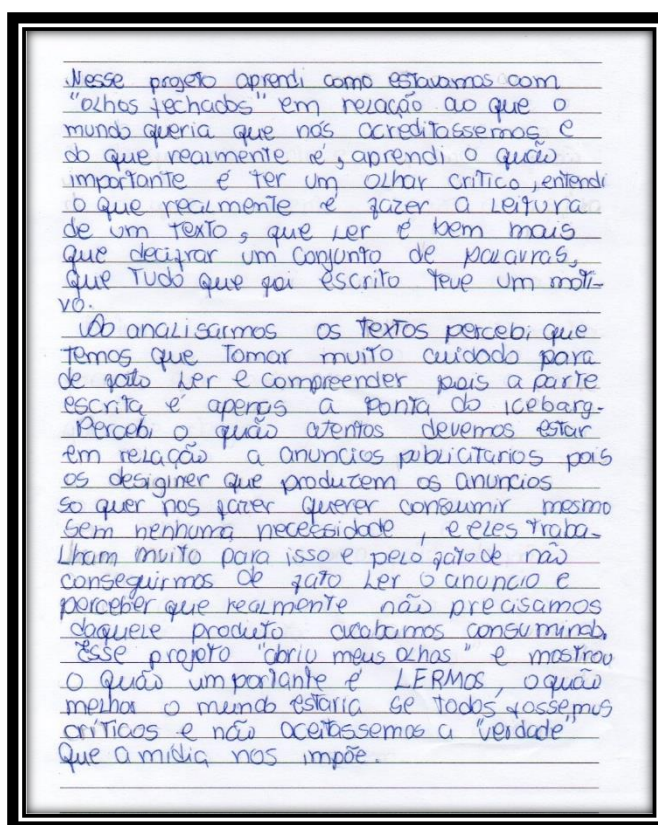 Nesse projeto aprendi como estavamos com
"olhos fechados" em relação ao que o
mundo queria que nós acreditassemos e
do que realmente é, aprendi o quão
importante é ter um olhar crítico, entendi
o que realmente é fazer a leitura
de um texto, que ler é bem mais
que decifrar um conjunto de palavras,
que tudo que foi escrito teve um moti-
vo.
Ao analisarmos os textos percebi que
temos que tomar muito cuidado para
de fato ler e compreender pois a parte
escrita é apenas a ponta do icebarg.
Percebi o quão atentos devemos estar
em relação a anuncios publicitarios pois
os desiginer que produzem os anuncios
so quer nos fazer querer consumir mesmo
sem nenhuma necessidade, e eles traba-
lham muito para isso e pelo fato de não
conseguirmos de fato ler o anuncio e
perceber que realmente não precisamos
daquele produto acabamos consumindo.
Esse projeto "abriu meus olhos" e mostrou
o quão umportante é LERMos, o quão
melhor o mundo estaria se todos fossemos
críticos e não aceitassemos a "verdade"
que a mídia nos impõe.